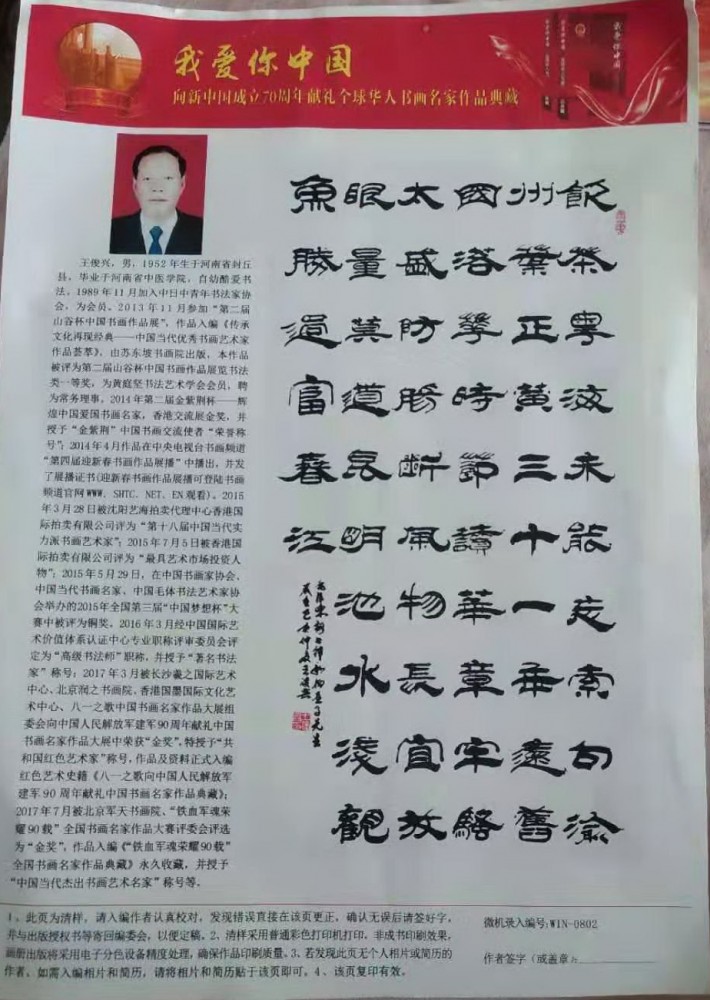 我爱你中国
向新中国成立70周年献礼全球华人书画名家作品典藏
我爱你中国
王俊兴，男，1952年生于河南省封丘
县，毕业于河南省中医学院，自幼酷爱书
法。1989年11月加入中日中青年书法家协
会，为会员。2013年11月参加“第二届
山谷杯中国书画作品展”，作品入编《传承
文化再现经典——中国当代优秀书画艺术家
作品荟萃》，由苏东坡书画院出版，本作品
被评为第二届山谷杯中国书画作品展览书法
类一等奖，为黄庭坚书法艺术学会会员，聘
为常务理事。2014年第二届金紫荆杯——辉
煌中国爱国书画名家，香港交流展金奖，并
授予“金紫荆”中国书画交流使者“荣誉称
号”；2014年4月作品在中央电视台书画频道
“第四届迎新春书画作品展播”中播出，并发
了展播证书(迎新春书画作品展播可登陆书画
频道官网WWW．SHTC．NET．EN观看)。2015
年3月28日被沈阳艺海拍卖代理中心香港国
际拍卖有限公司评为“第十八届中国当代实
力派书画艺术家”；2015年7月5日被香港国
际拍卖有限公司评为“最具艺术市场投资人
物”；2015年5月29日，在中国书画家协会、
中国当代书画名家、中国毛体书法艺术家协
会举办的2015年全国第三届“中国梦想杯”大
赛中被评为铜奖。2016年3月经中国国际艺
术价值体系认证中心专业职称评审委员会评
定为“高级书法师”职称，并授予“著名书法
家”称号；2017年3月被长沙羲之国际艺术
中心、北京润之书画院、香港国墨国际文化艺
术中心、八一之歌中国书画名家作品大展组
委会向中国人民解放军建军90周年献礼中国
书画名家作品大展中荣获“金奖”，特授予“共
和国红色艺术家”称号，作品及资料正式入编
红色艺术史籍《八一之歌向中国人民解放军
建军90周年献礼中国书画名家作品典藏》；
2017年7月被北京军天书画院、“铁血军魂荣
耀90载”全国书画名家作品大赛评委会评选
为“金奖”，作品入编《“铁血军魂荣耀90载”
全国书画名家作品典藏》永久收藏，并授予
“中国当代杰出书画艺术名家”称号等。
飲茶粤海未能忘索句渝
州葉正黄三十一年還舊
國落華時節讀華章牢騷
太盛防腸斷風物長宜放
眼量莫道昆明池水淺觀
魚勝過富春江
1、此页为清样，请入编作者认真校对，发现错误直接在该页更正，确认无误后请签好字，
并与出版授权书等寄回编委会，以便定稿。2、清样采用普通彩色打印机打印，非成书印刷效果，
画册出版将采用电子分色设备精度处理，确保作品印刷质量。3、若发现此页无个人相片或简历的
作者、如需入编相片和简历，请将相片和简历贴于该页即可。4、该页复印有效。
微机录入编号：WIN-0802
作者签字（或盖章）：